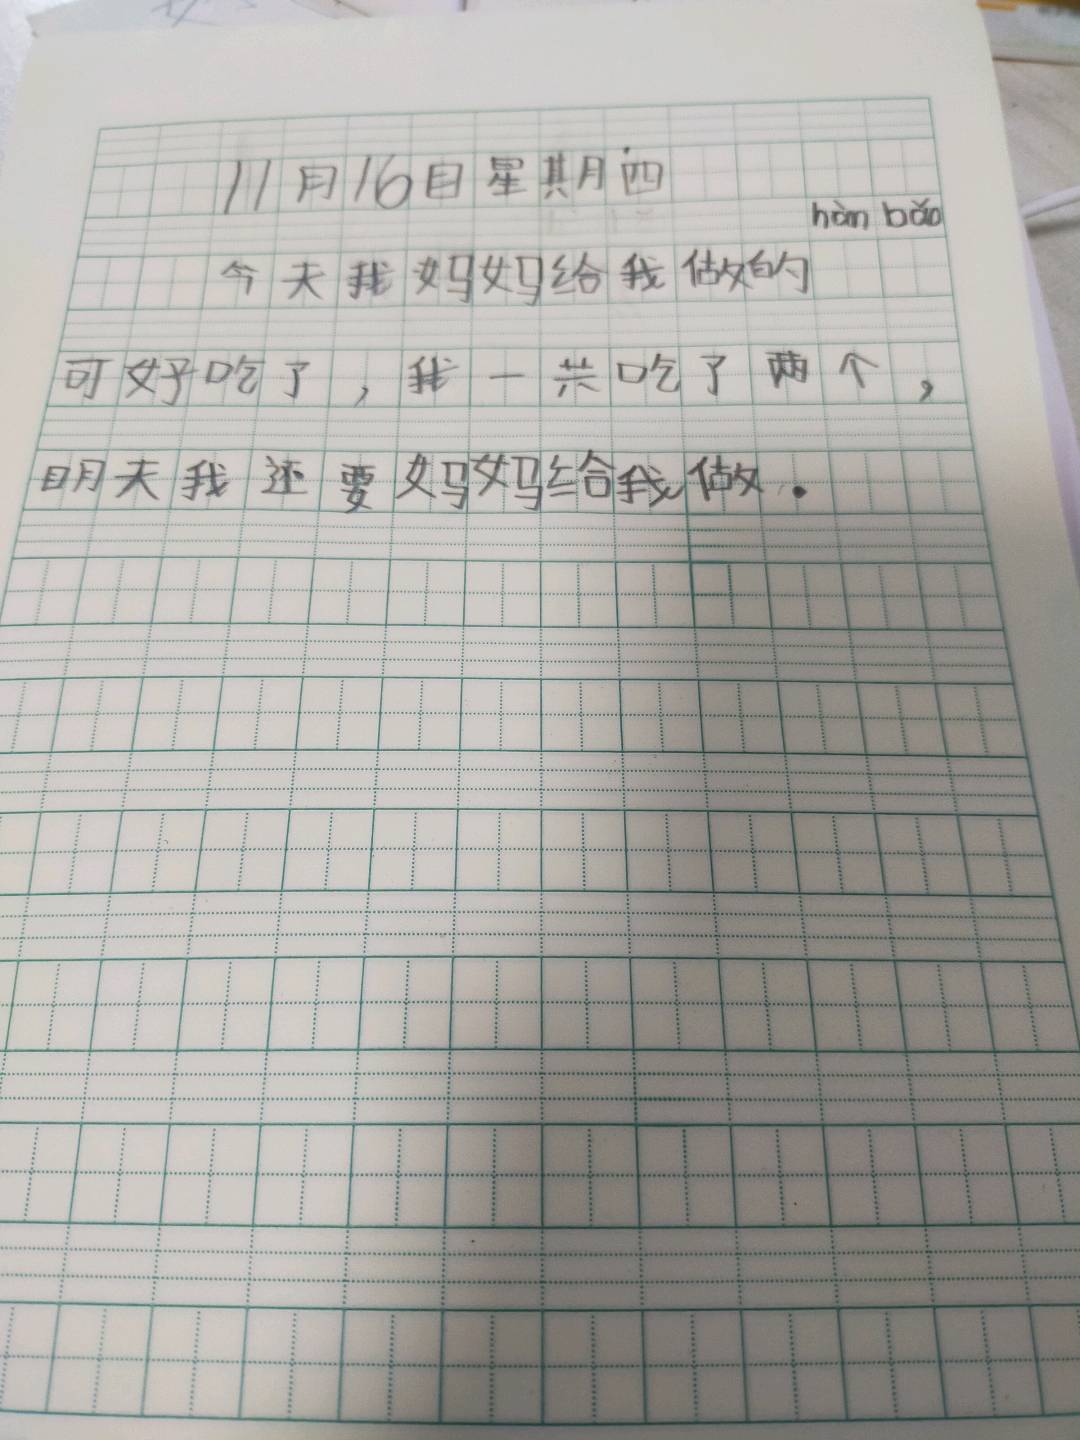 11月16日星期四
今天我妈妈给我做的hàn bǎo
可好吃了，我一共吃了两个，
明天我还要妈妈给我做.